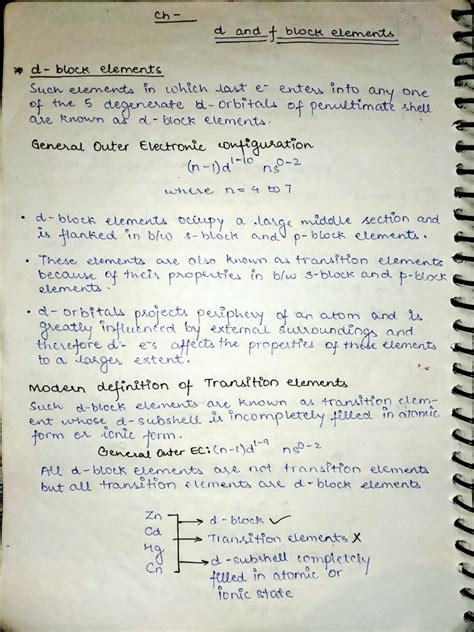 Ch-
d and f block elements
* d-block elements
Such elements in which last e⁻ enters into any one
of the 5 degenerate d-orbitals of penultimate shell
are known as d-block elements.
General Outer Electronic configuration
(n-1)d¹⁻¹⁰ ns⁰⁻²
where n = 4 to 7
• d-block elements occupy a large middle section and
is flanked in b/w s-block and p-block elements.
• These elements are also known as transition elements
because of their properties in b/w s-block and p-block
elements.
• d-orbitals projects periphery of an atom and is
greatly influenced by external surroundings and
therefore d- e⁻s affects the properties of these elements
to a larger extent.
Modern definition of Transition elements
Such d-block elements are known as transition elem-
ent whose d-subshell is incompletely filled in atomic
form or ionic form.
General Outer EC: (n-1)d¹⁻⁹ ns⁰⁻²
All d-block elements are not transition elements
but all transition elements are d-block elements
Zn → d-block ✓
Cd → Transition elements X
Hg → d-subshell completely
Cn filled in atomic or
ionic state